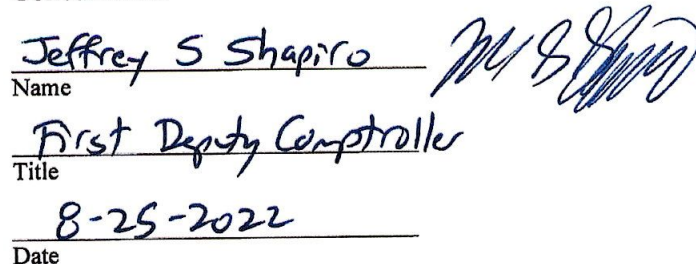 Jeffrey S Shapiro
Name
First Deputy Comptroller
Title
8-25-2022
Date